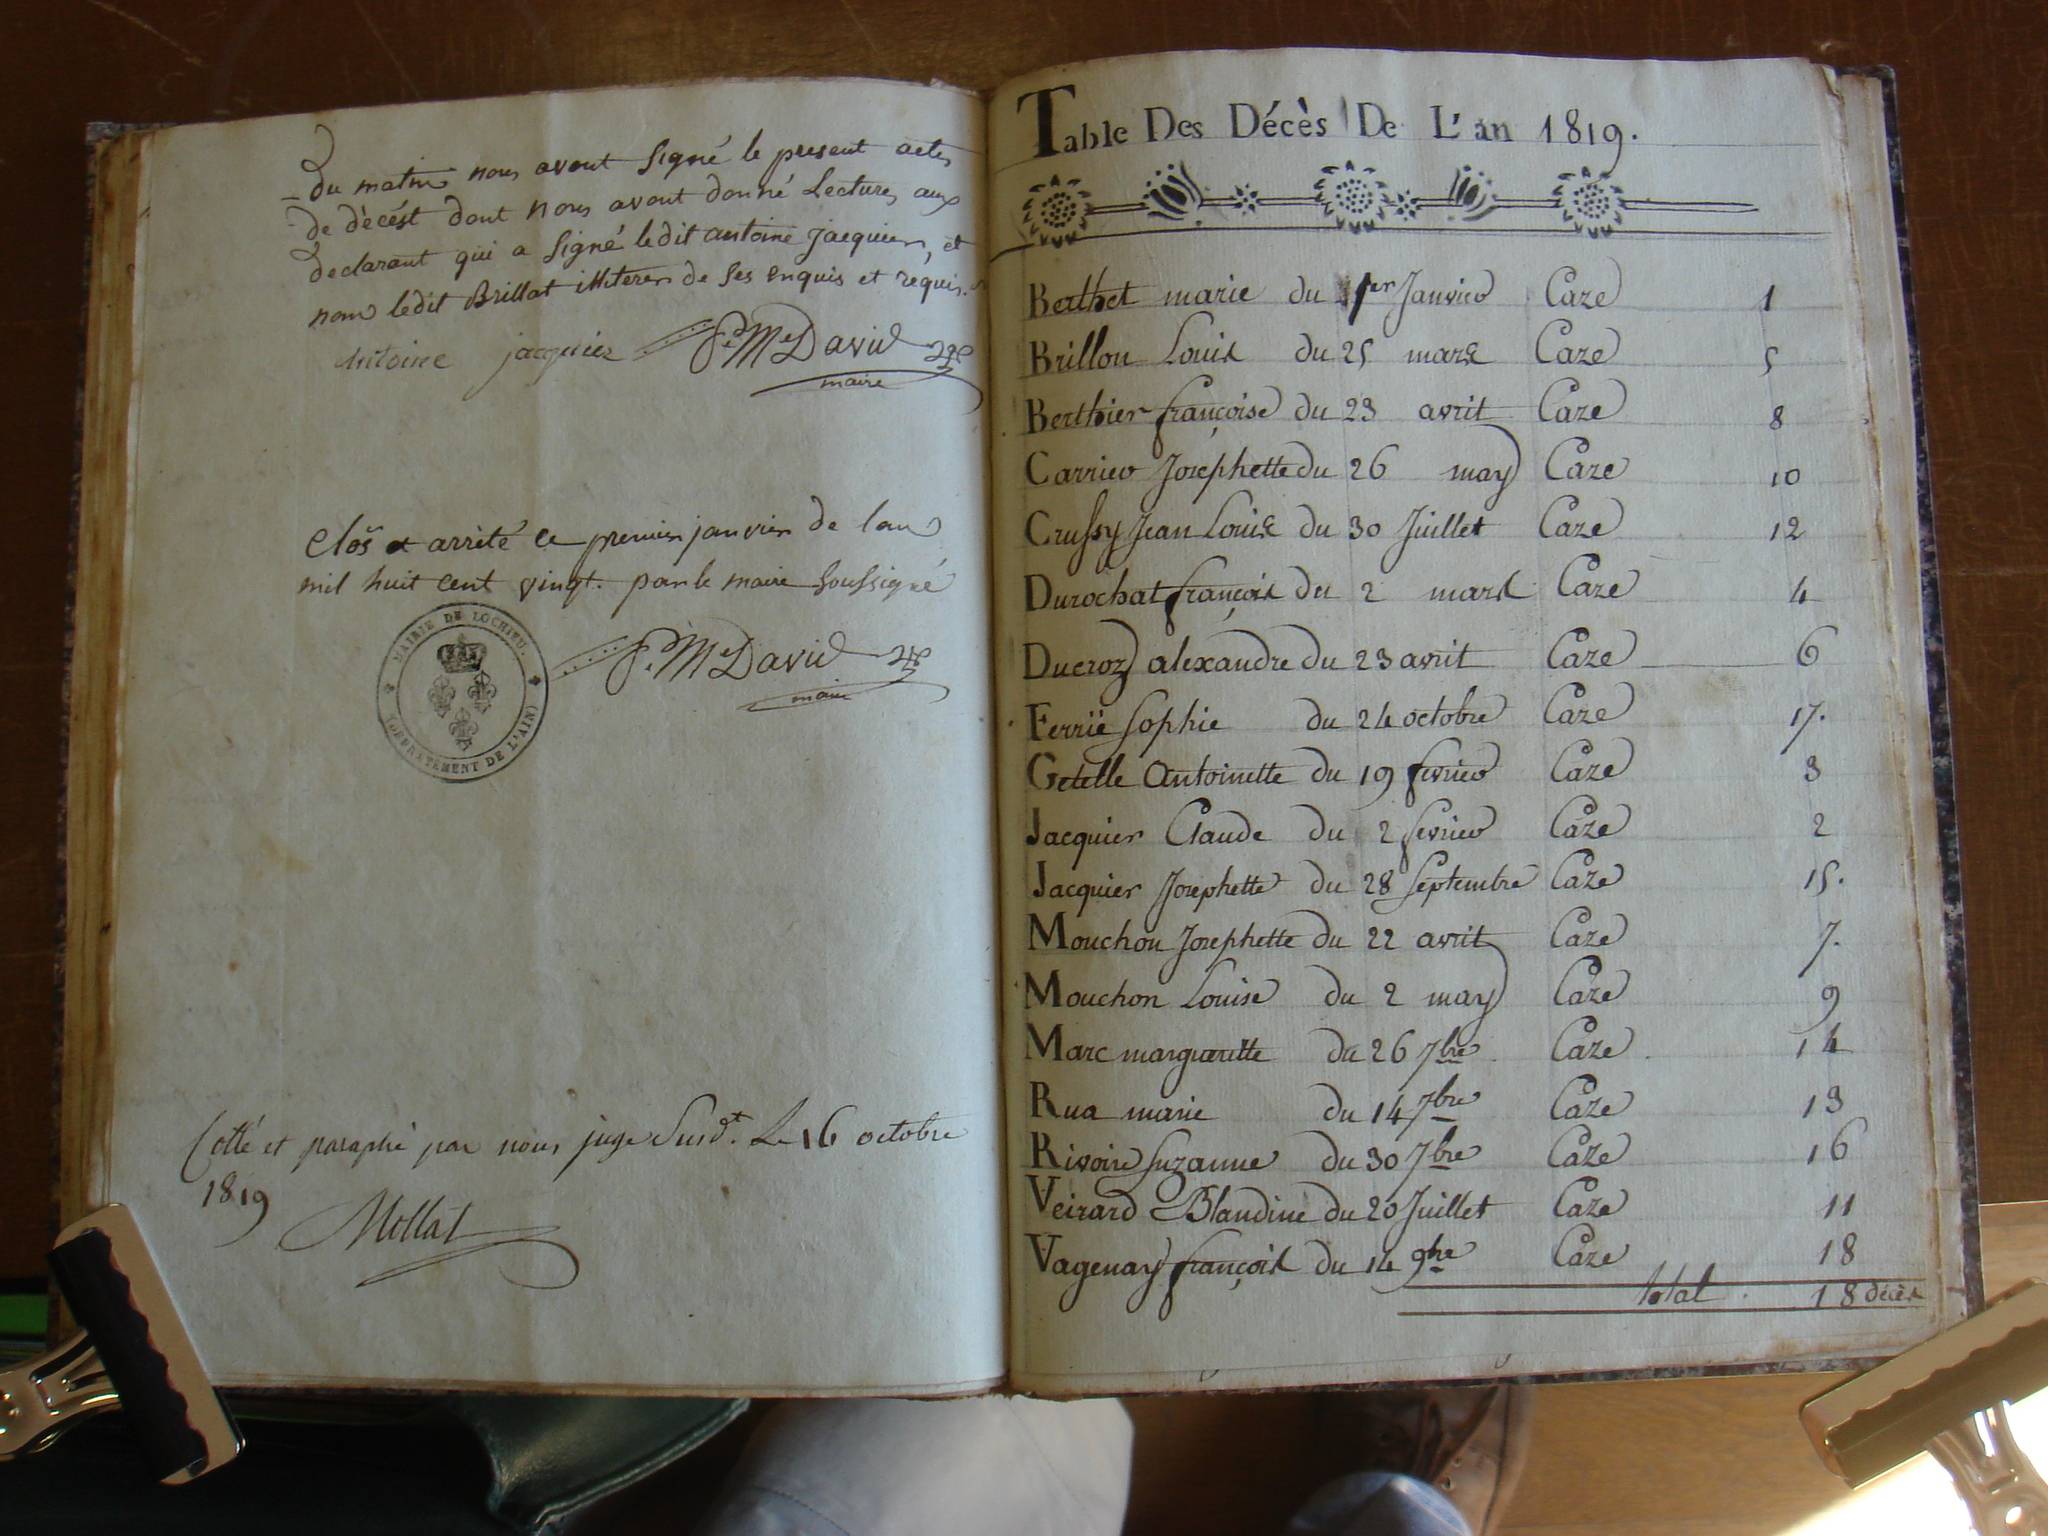 du matin nous avont signé le present actes
de décést dont nous avont donné Lectures aux
declarant qui a signé ledit antoine jacquier, et
non ledit Brillat illiteres de ses enquis et requis.
Antoine jacquier P. M. David
maire
Clos et arrêté ce premier janvier de lan
mil huit cent vingt. par le maire soussigné
MAIRIE DE LOCHIEU.
(DEPARTEMENT DE L'AIN)
P. M. David
maire
Cotté et paraphé par nous juge Susdt. Le 16 octobre
1819
Mollat
Table Des Décès De L'an 1819.
Berthet marie du 1er Janvier Caze 1
Brillon Louis du 25 mars Caze 5
Berthier françoise du 23 avril Caze 8
Carrier Josephette du 26 may Caze 10
Crussy Jean Louis du 30 Juillet Caze 12
Durochat françois du 2 mars Caze 4
Ducroz alexandre du 23 avril Caze 6
Ferrïe Sophie du 24 octobre Caze 17.
Getelle Antoinette du 19 fevrier Caze 3
Jacquier Claude du 2 fevrier Caze 2
Jacquier Josephette du 28 Septembre Caze 15.
Mouchon Josephette du 22 avril Caze 7.
Mouchon Louise du 2 may Caze 9
Marc margueritte du 26 7bre Caze 14
Rua marie du 14 7bre Caze 13
Rivoire Suzanne du 30 7bre Caze 16
Veirard Blandine du 20 Juillet Caze 11
Vagenay françois du 14 9bre Caze 18
total. 18 décès